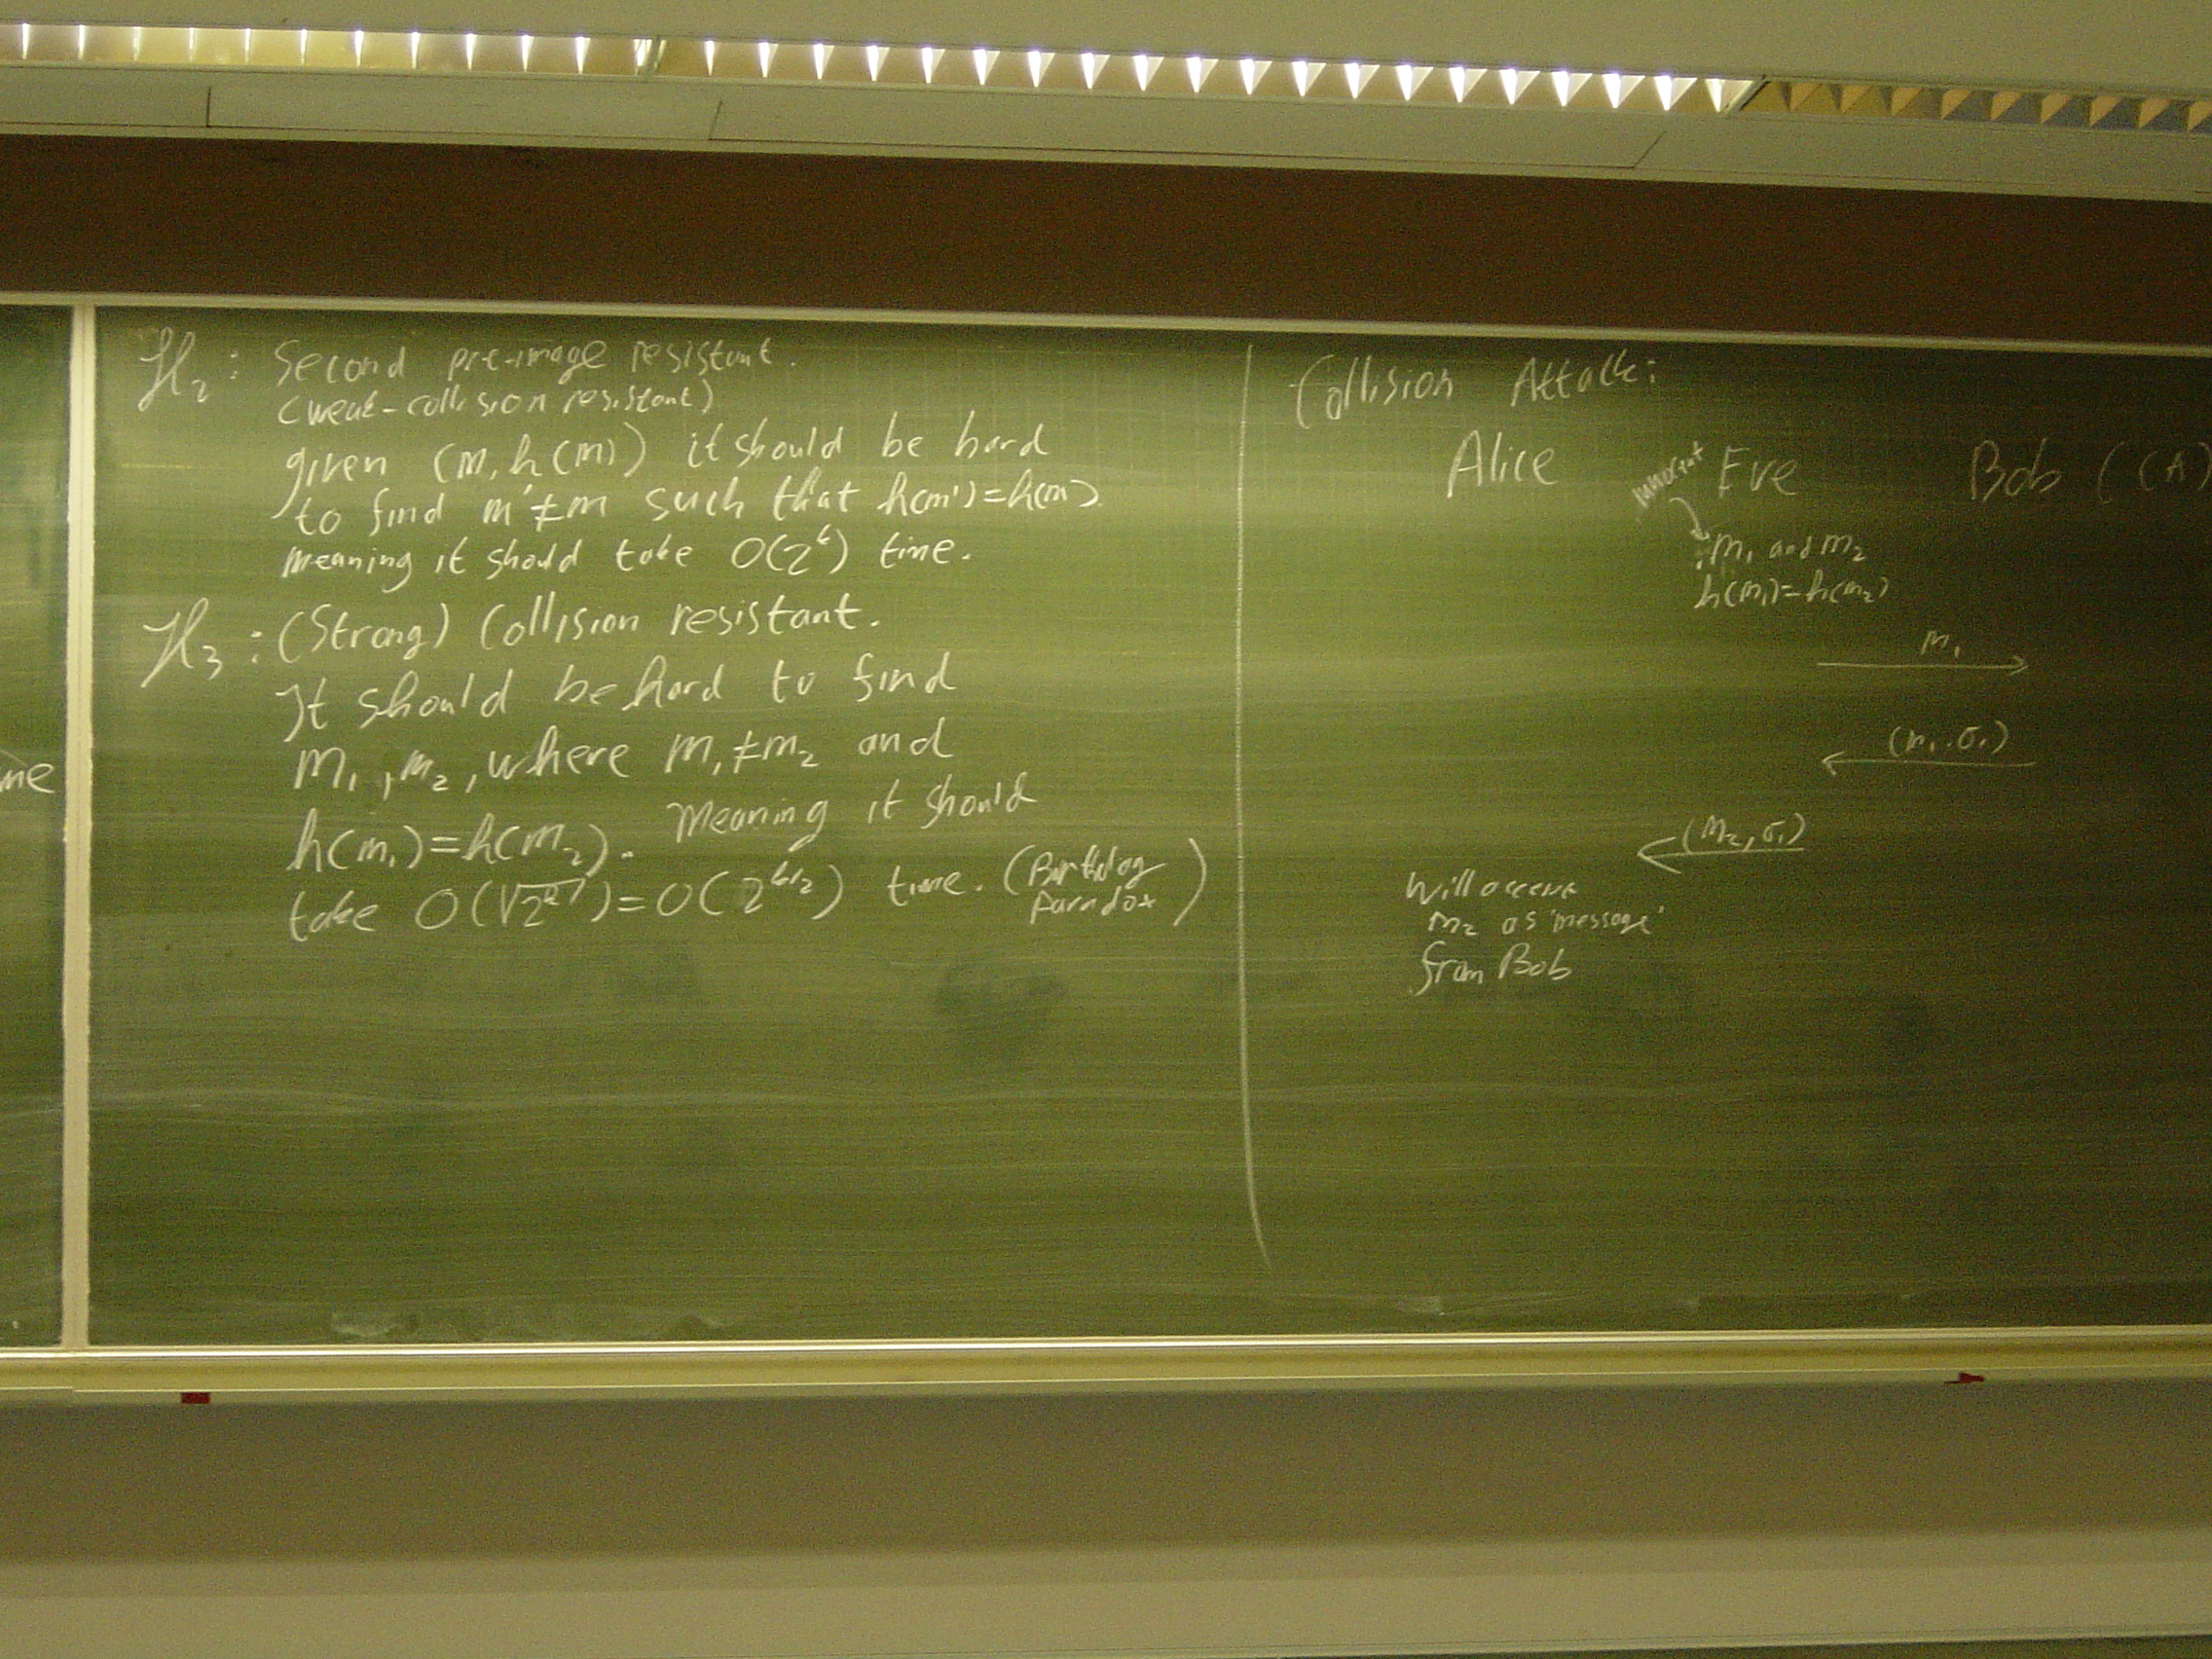 me
H₂: Second pre-image resistant.
(weak-collision resistant)
given (m, h(m)) it should be hard
to find m'≠m such that h(m')=h(m)
meaning it should take O(2^k) time.
H₃: (Strong) Collision resistant.
It should be hard to find
m₁, m₂, where m₁≠m₂ and
h(m₁)=h(m₂). Meaning it should
take O(√2^k)=O(2^k/2) time. (Birthday
Paradox)
Collision Attack:
Alice Eve Bob (CA)
innocent
m₁ and m₂
h(m₁)=h(m₂)
m₁
(m₁, σ₁)
(m₂, σ₁)
Will accept
m₂ as 'message'
from Bob